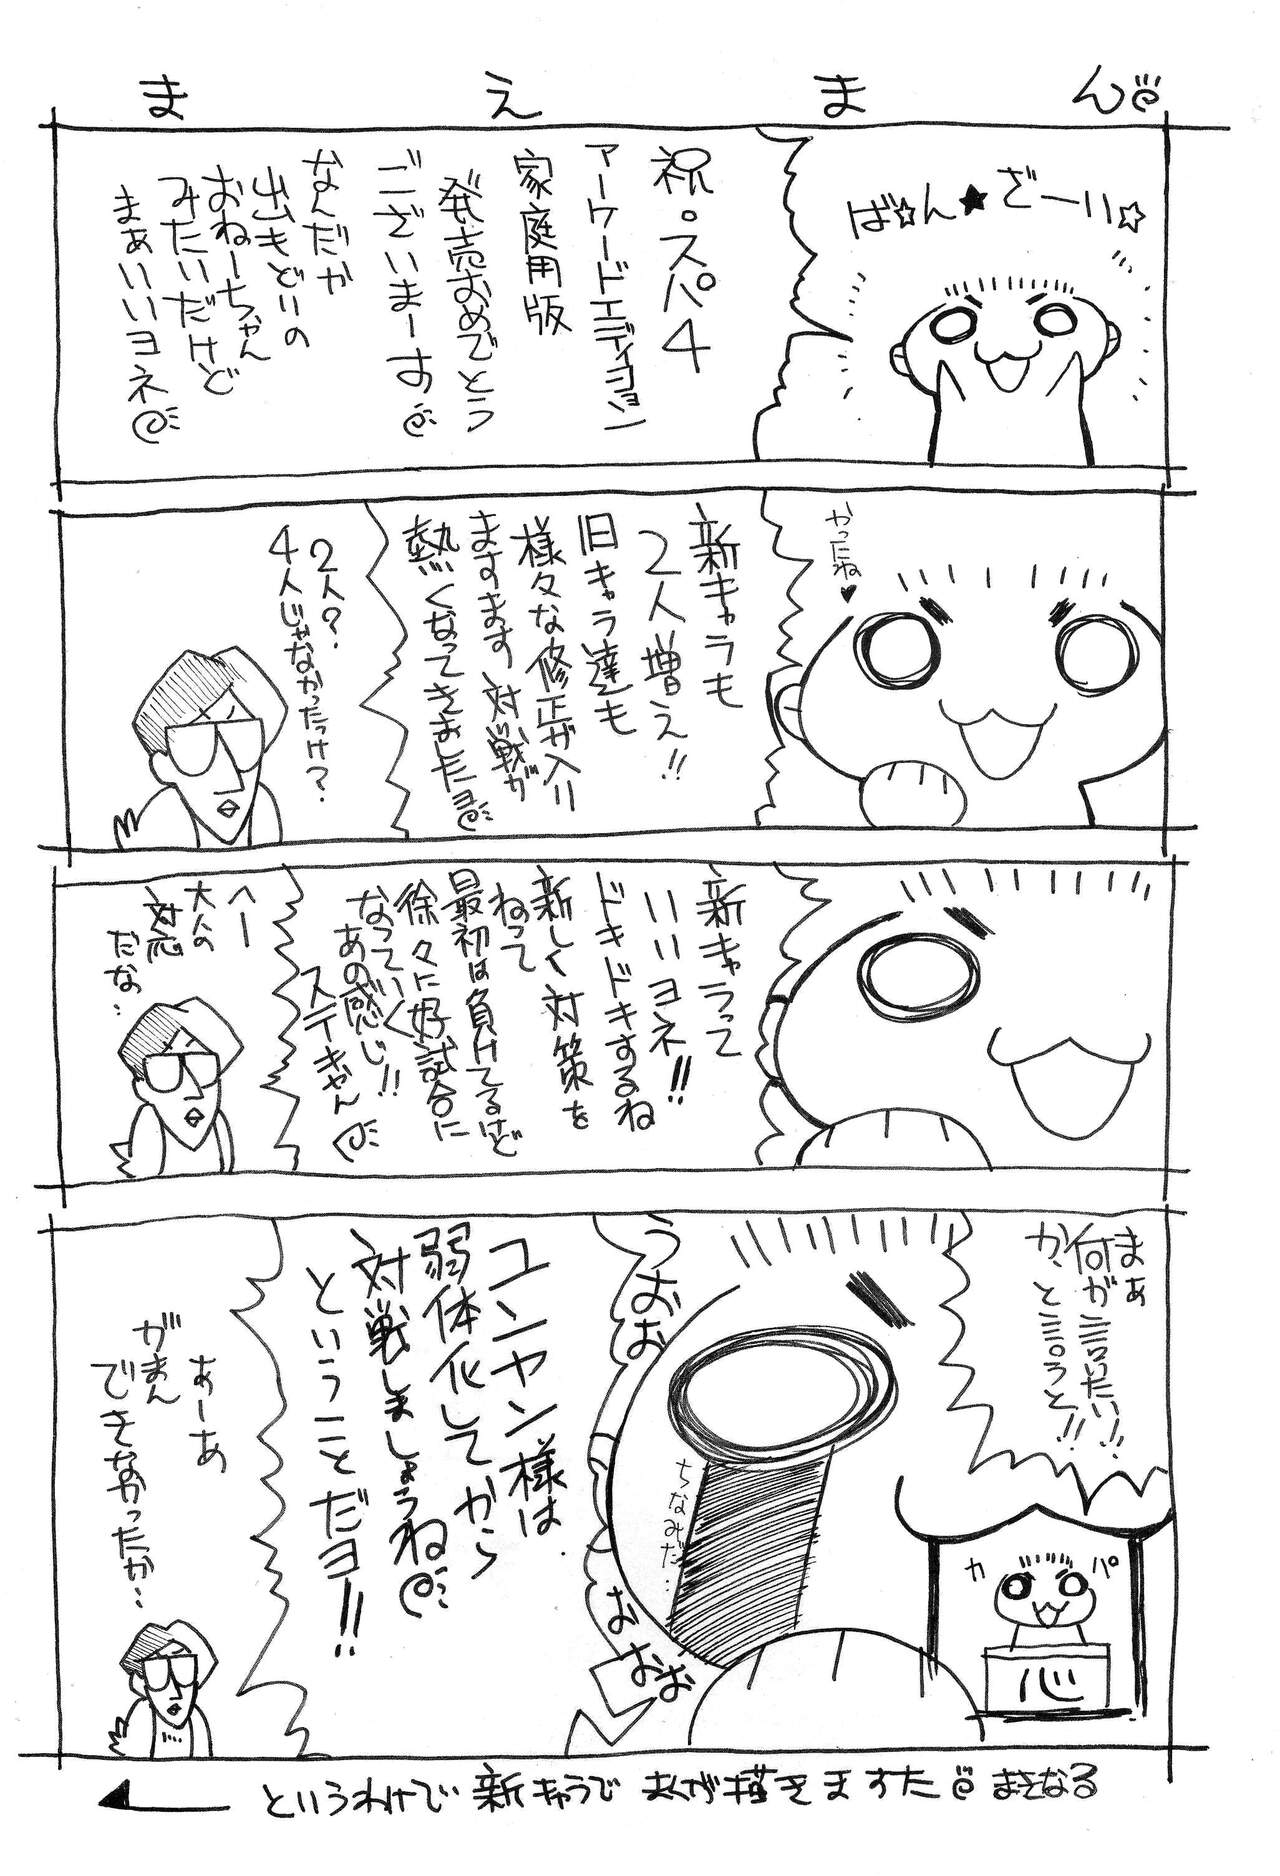 まえまん
ば☆ん★ざーい☆
祝。スパ4
アーケードエディション
家庭用版
発売おめでとう
ございまーす
なんだか
出もどりの
おねーちゃん
みたいだけど
まぁいいヨネ
かったね♥
新キャラも
2人増え!!
旧キャラ達も
様々な修正が入り
ますます対戦が
熱くなってきましたヨ
2人?
4人じゃなかったっけ?
新キャラって
いいヨネ!!
ドキドキするね
新しく対策を
ねって
最初は負けてるけど
徐々に好試合に
なっていく
あの感じ!!
ステキやん
へー
大人の
対応
だな..
まぁ
何が言いたい!!
か、と言うと!!
カパ
心
うおお
おおおお
ちなみだ..
ユンヤン様は
弱体化してから
対戦しましょうね
ということだヨ!!
あーあ
がまん
できなかったか…
というわけで新キャラでまんが描きますた まさなる